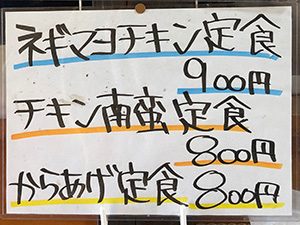 ネギマヨチキン定食
900円
チキン南蛮定食
800円
からあげ定食 800円